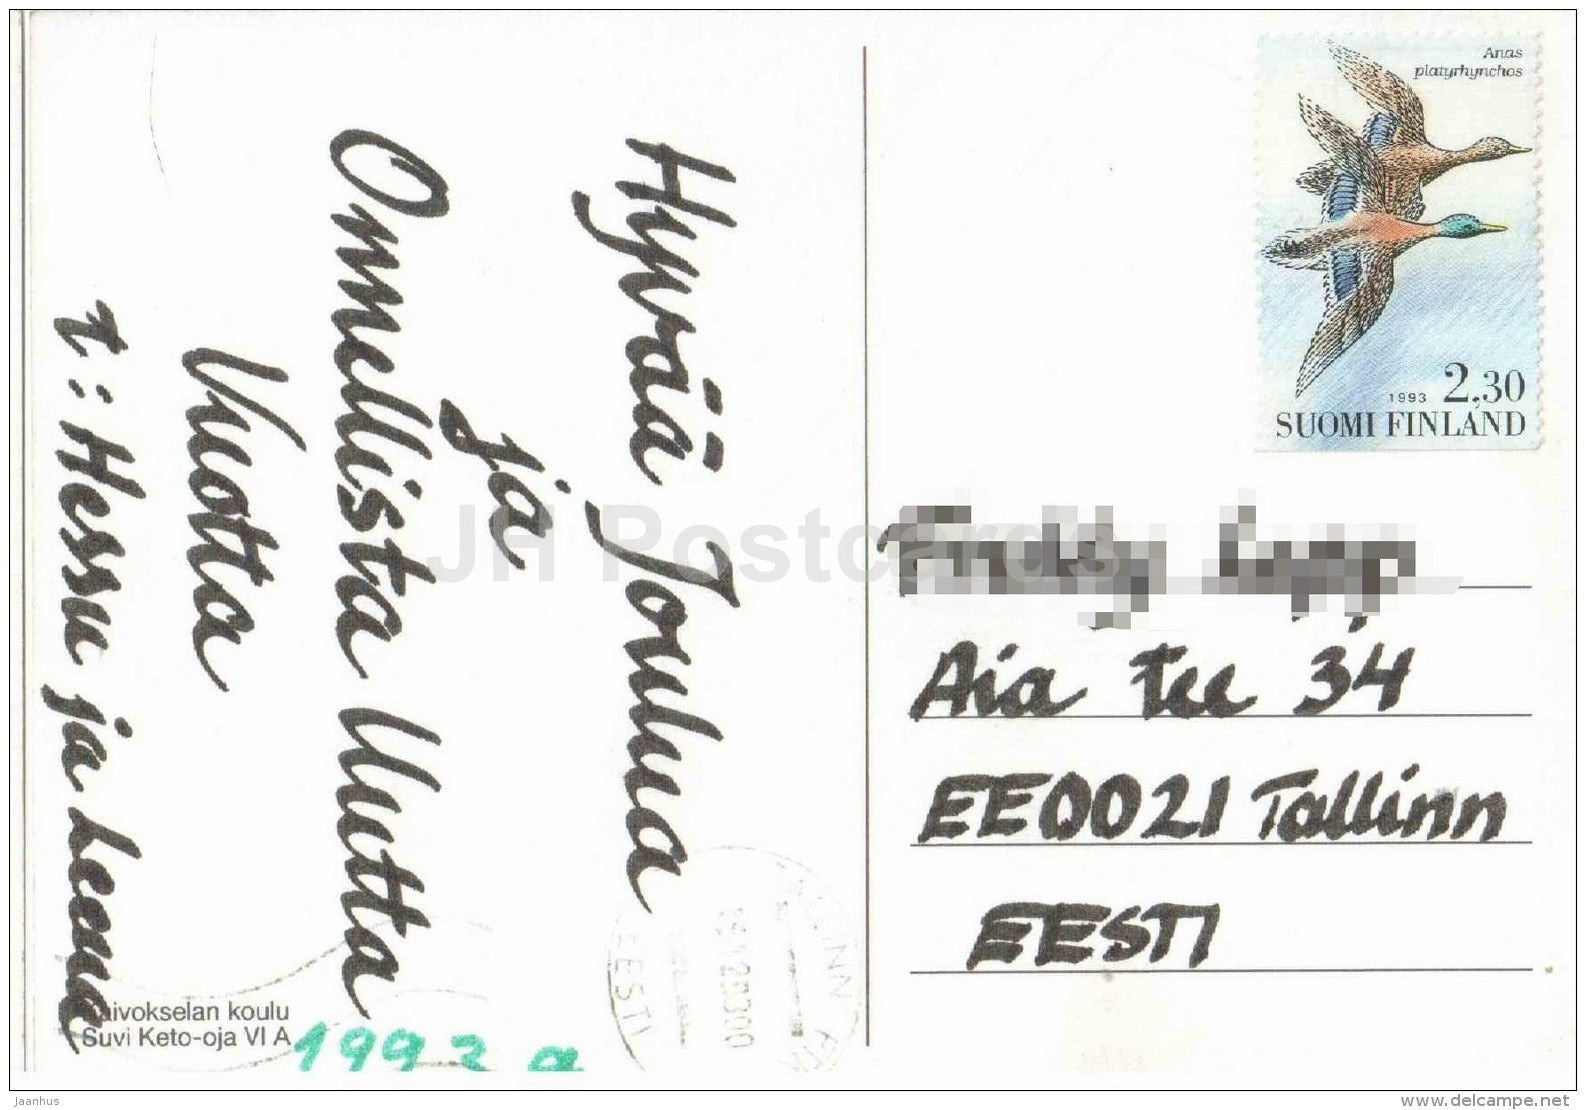 Hyvää Joulua
ja
Onnellista Uutta
Vuotta
t: Hessu ja Leena
Anas
platyrhynchos
1993 2,30
SUOMI FINLAND
Aia tee 34
EE0021 Tallinn
EESTI
koulu
Suvi Keto-oja VI A
1993 a
EESTI
JH Postcards
Jaanhus
www.delcampe.net